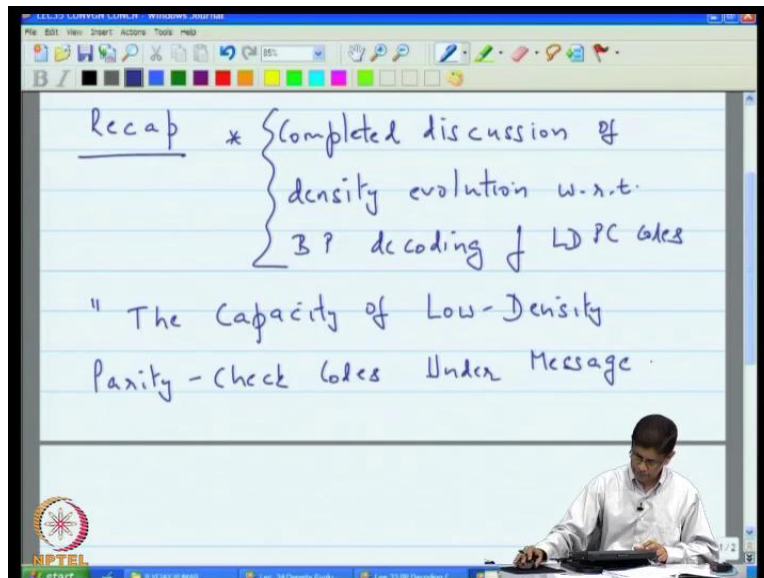 LEC35 CONVGN CONCN - Windows Journal
File Edit View Insert Actions Tools Help
85%
B I
Recap * Completed discussion of
density evolution w.r.t.
BP decoding of LDPC codes
" The Capacity of Low-Density
Parity-Check Codes Under Message
NPTEL
start